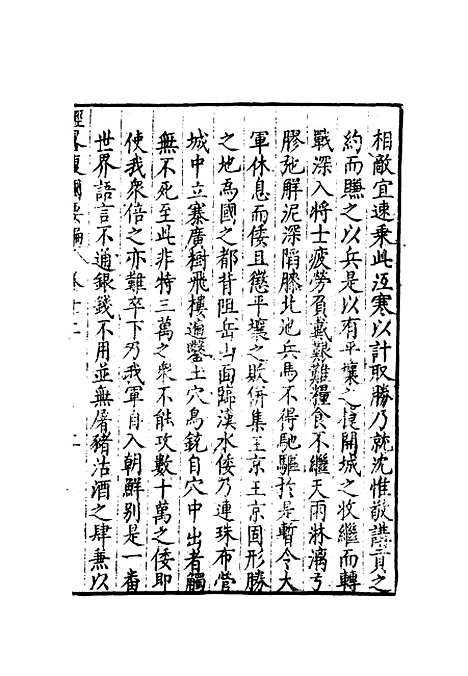 相敵宜速乘此沍寒以計取勝乃就沈惟敬講貢之
約而賺之以兵是以有平壤之捷開城之收繼而轉
戰深入將士疲勞負戴艱難糧食不繼天雨淋漓弓
膠弛解泥深陷膝北池兵馬不得馳驅於是暫令大
軍休息而倭且懲平壤之敗併集王京王京固形勝
之地為國之都背阻岳山面歸漢水倭乃連珠布營
城中立寨廣樹飛樓遍鑿土穴鳥銃自穴中出者觸
無不死至此非特三萬之衆不能攻數十萬之倭即
使我衆倍之亦難卒下乃我軍自入朝鮮别是一番
世界語言不通銀錢不用並無屠豬沽酒之肆兼以
經畧復國要編 卷十二